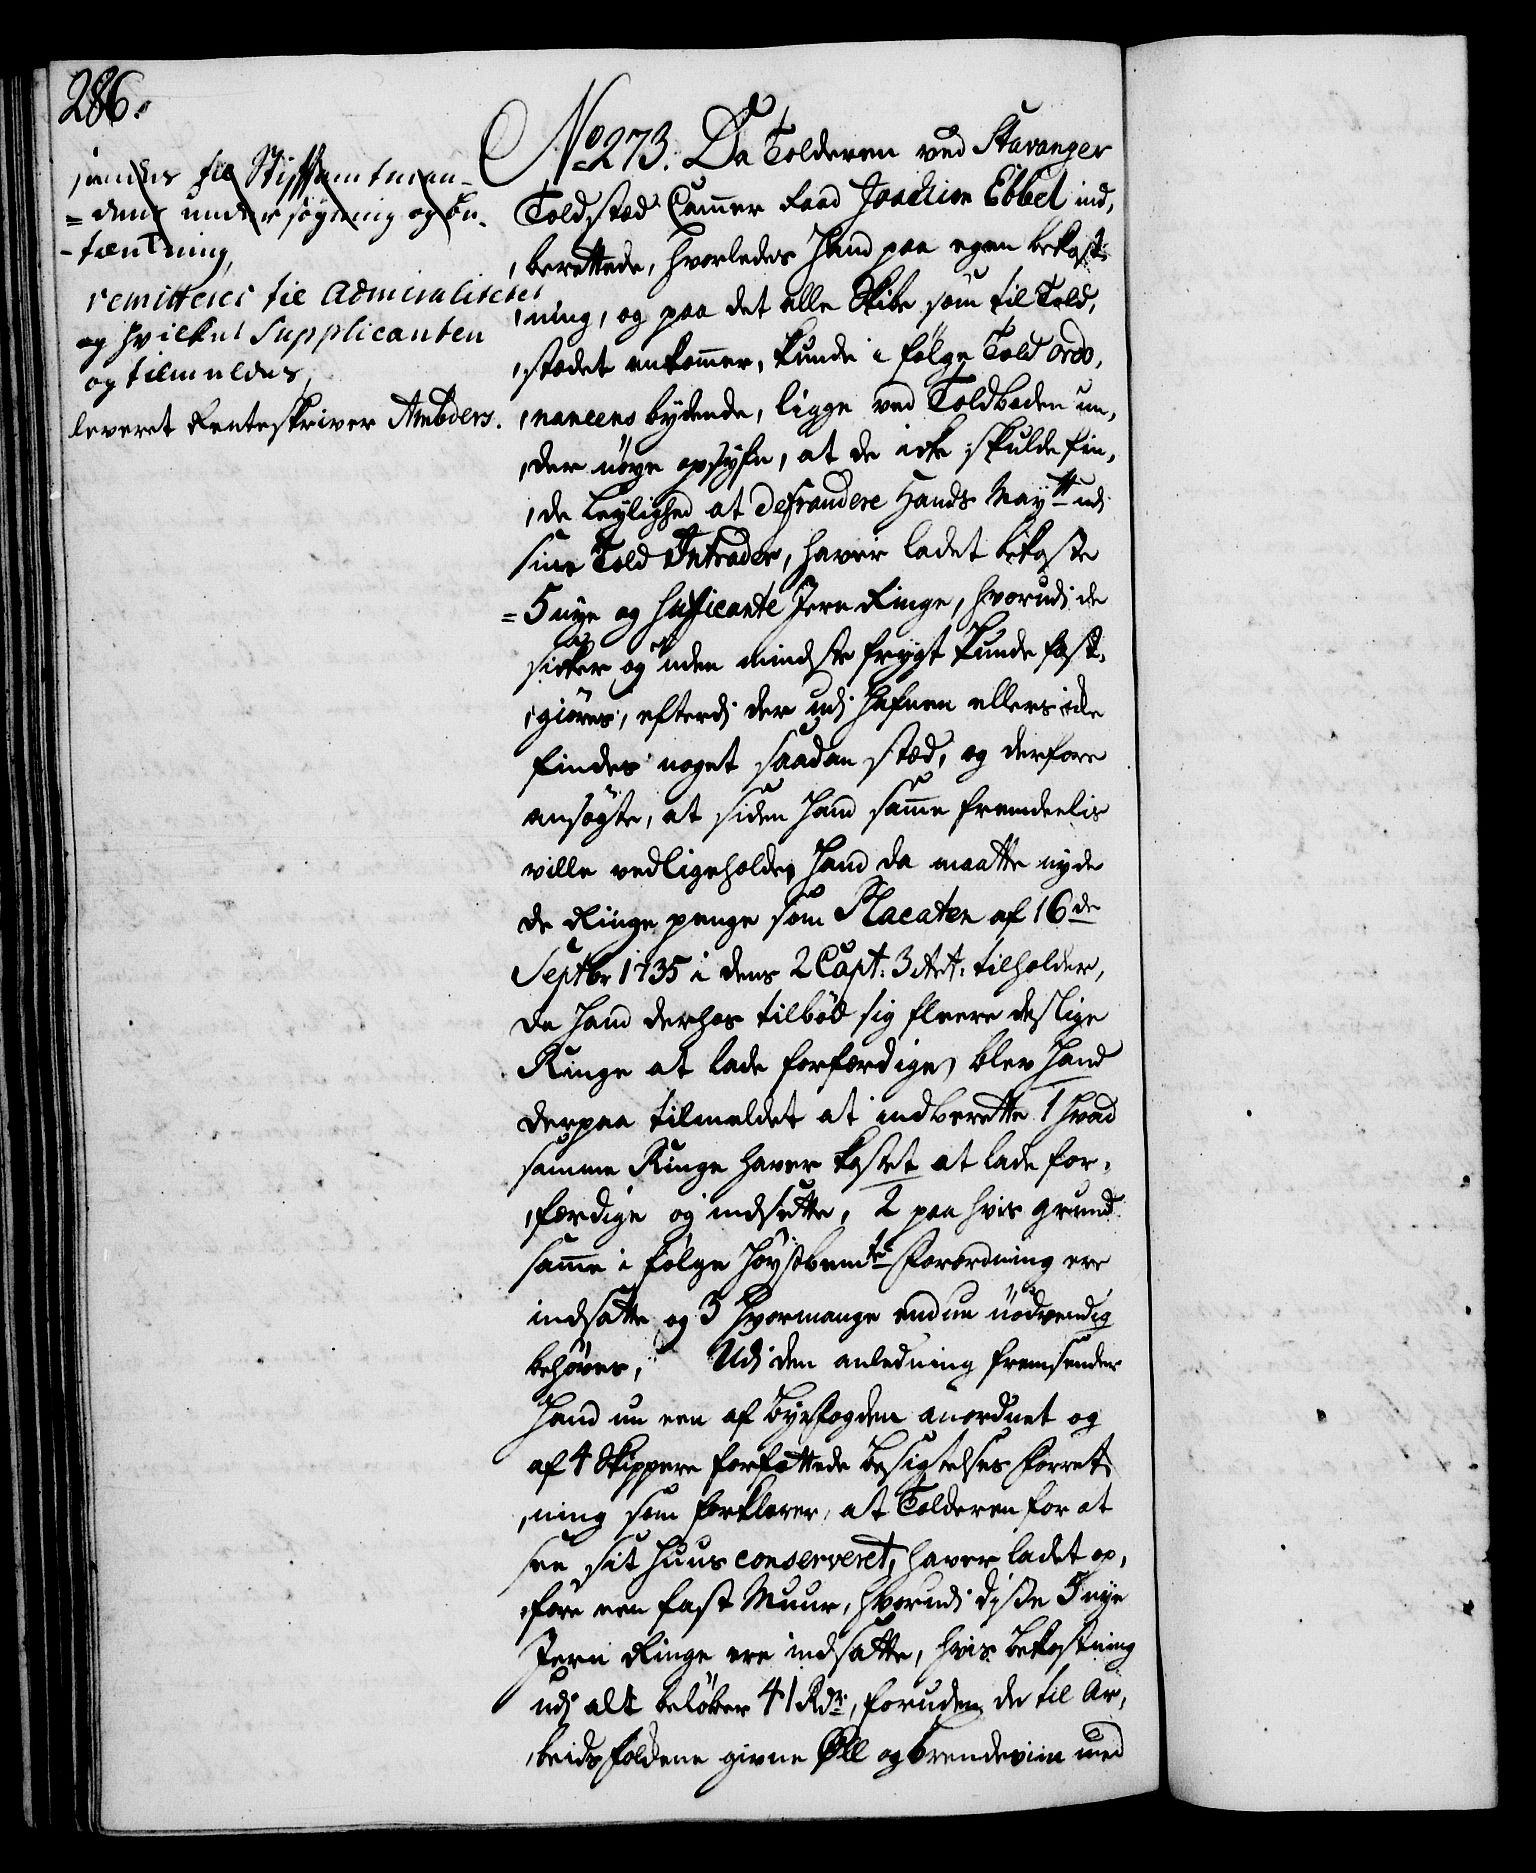 286.
sendes til Stiftamtman-
=dens undersøgning og be-
-tænkning,
remitteres til Admiralitetet
og hvilket Supplicanten
og tilmeldes,
leveret Renteskriver Ambders.
No 273. Da Tolderen ved Stavanger
Toldstæd Cammer Raad Joachim Ebbel ind,
,berettede, hvorledes Hand paa egen bekost-
,ning, og paa det alle Skibe som til Told,
,stædet ankommer, kunde i følge Told ordo,
,nancens bydende, ligge ved Toldboden un,
,der nöye opsyhn, at de icke skulde fin,
,de Leylighed at defraudere Hands Maytt udj
sine Told Intrader, haver ladet bekoste
=5 nye og suficante Jern Ringe, hvorudj de
sicker og uden mindste frygt kunde fast,
,giöres, efterdj der udj Hafnen ellers icke
findes noget saadan stæd, og derfore
ansögte, at siden Hand samme fremdeelis
ville vedligeholde, Hand da maatte nyde
de Ringe penge som Placaten af 16de
Septbr 1735 i dens 2 Capt: 3 Art: tilholder,
da Hand derhos tilböd sig fleere deslige
Ringe at lade forfærdige, blev Hand
derpaa tilmeldet at indberette 1 Hvad
samme Ringe haver kostet at lade for,
,færdige og indsætte, 2 paa hvis grund
samme i følge höystbemte Forordning ere
indsatte og 3 Hvormange endnu nödvendig
behöves, Udj den anledning fremsender
Hand nu een af Byefogden anordnet og
af 4 Skippere forfattede besigtelses Forret,
,ning som forklarer, at Tolderen for at
see sit Huus conserveret, haver ladet op,
,före een fast Muur, hvorudj disse 5 nye
Jern Ringe ere indsatte, hvis bekostning
udj alt belöber 41 Rdr, foruden de til Ar,
,beidsfolckene givne Øll og brendeviin med